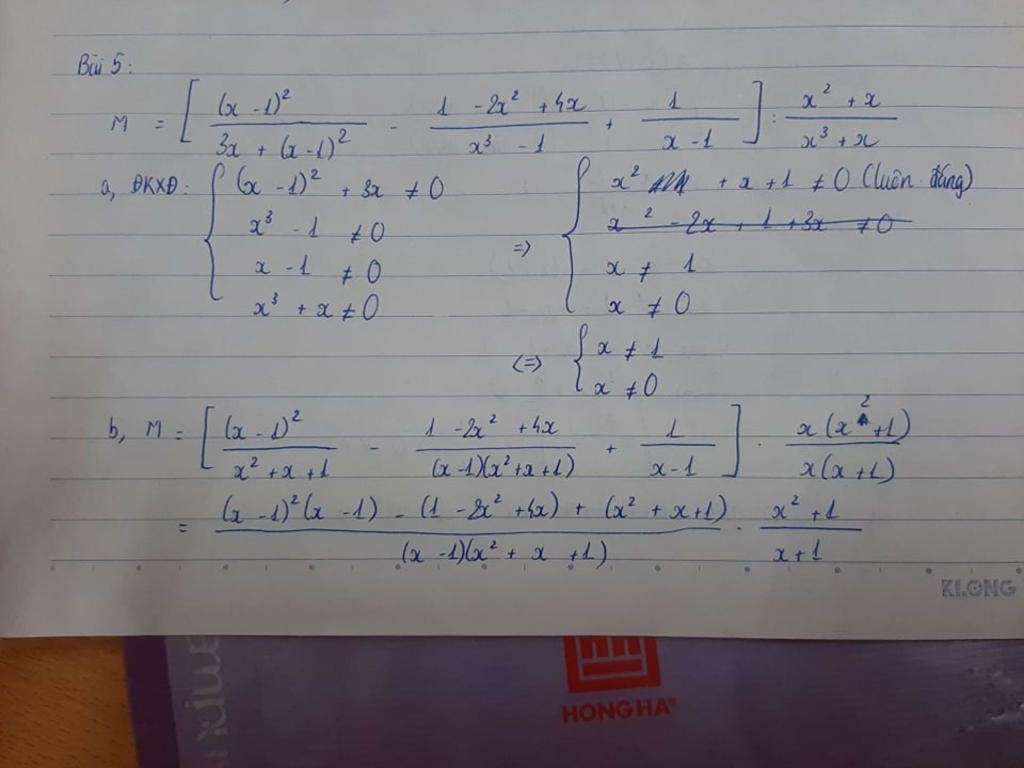 Bài 5:
M = [ (x - 1)² / (3x + (x - 1)²) - (1 - 2x² + 4x) / (x³ - 1) + 1 / (x - 1) ] : (x² + x) / (x³ + x)
a, ĐKXĐ: { (x - 1)² + 3x ≠ 0 { x² + x + 1 ≠ 0 (luôn đúng)
x³ - 1 ≠ 0 => x² - 2x + 1 + 3x ≠ 0
x - 1 ≠ 0 x ≠ 1
x³ + x ≠ 0 x ≠ 0
<=> { x ≠ 1
x ≠ 0
b, M = [ (x - 1)² / (x² + x + 1) - (1 - 2x² + 4x) / ((x - 1)(x² + x + 1)) + 1 / (x - 1) ] . x(x² + 1) / x(x + 1)
= ((x - 1)²(x - 1) - (1 - 2x² + 4x) + (x² + x + 1)) / ((x - 1)(x² + x + 1)) . (x² + 1) / (x + 1)
KLONG
HONG HA®